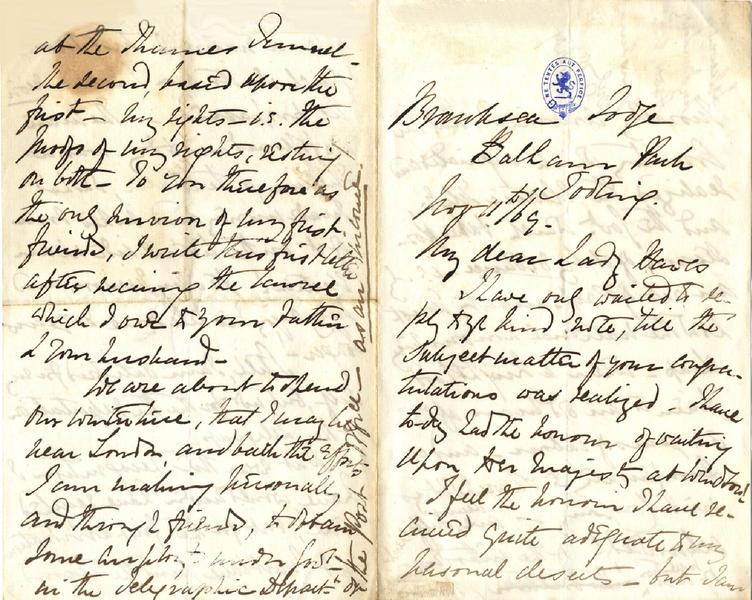 NE TENTES AUT PERFICE
Branksea Lodge
Balham Park
Tooting.
Nov 11th/69.
My dear Lady Hawes
I have only waited to re-
ply to yr kind note, till the
Subject matter of your congra-
tulations was realized - I have
to-day had the honour of waiting
upon Her Majesty at Windsor!
I feel the honour I have re-
ceived quite adequate to my
personal deserts - but I am
at the Thames Tunnel -
the second, based upon the
first - my rights - i.e. the
proofs of my rights, resting
on both - To you therefore as
the only survivor of my first
friends, I write this first letter
after receiving the honor
which I owe to your Father
& Your husband -
We are about to spend
our winter here, that I may be
near London, and back the efforts
I am making personally
and through friends, to obtain
some employt under Govt
in the Telegraphic Departt or
the Post Office - as an income.